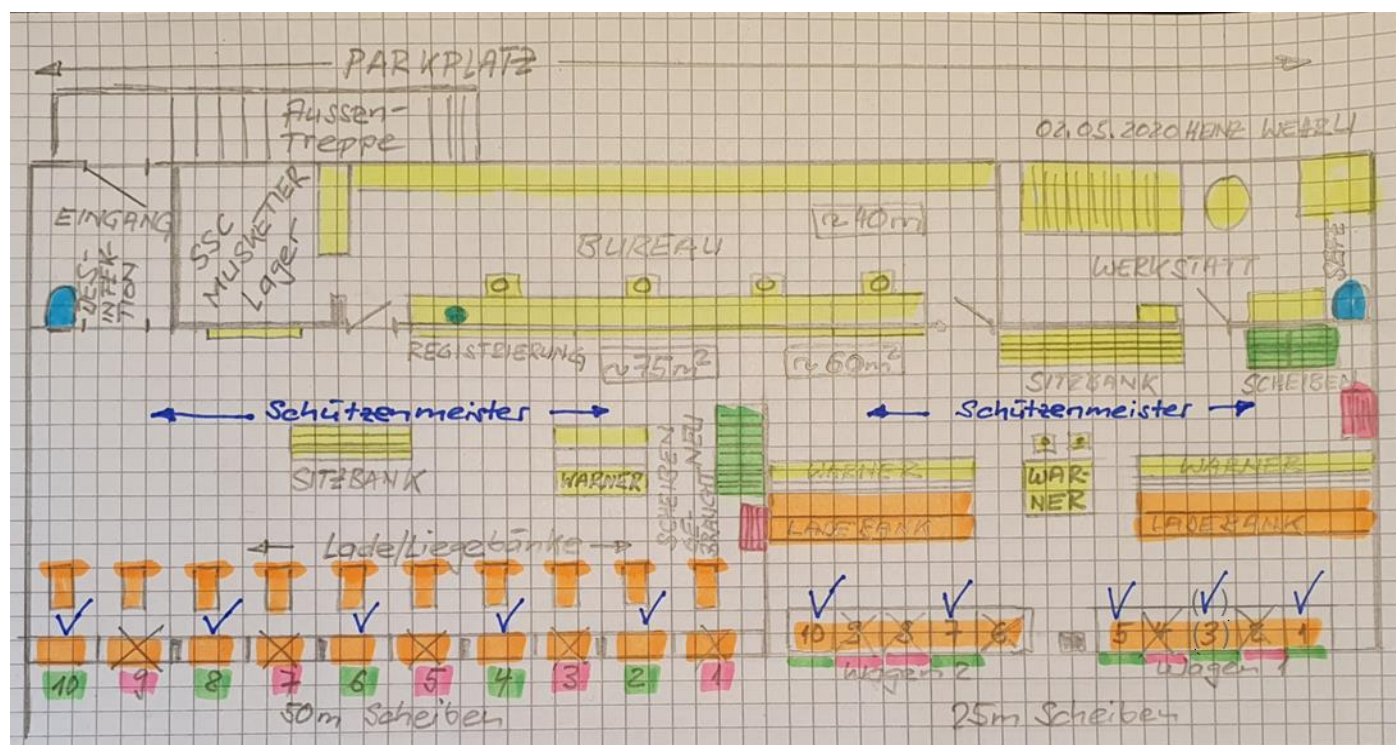 PARKPLATZ
Aussen-
Treppe
02.05.2020 HEINZ WEHRLI
EINGANG
DES-
INFEK-
TION
SSC
MUSKETIER
Lager
BUREAU
~40m
WERKSTATT
SEIFE
REGISTRIERUNG
~75m²
~60m²
SITZBANK
SCHEIBEN
Schützenmeister
Schützenmeister
SITZBANK
WARNER
SCHEIBEN
GE-
BRAUCHT NEU
WARNER
LADEBANK
WAR-
NER
WARNER
LADEBANK
Lade/Liegebänke
10 9 8 7 6
5 4 (3) 2 1
Wagen 2
Wagen 1
10 9 8 7 6 5 4 3 2 1
50m Scheiben
25m Scheiben